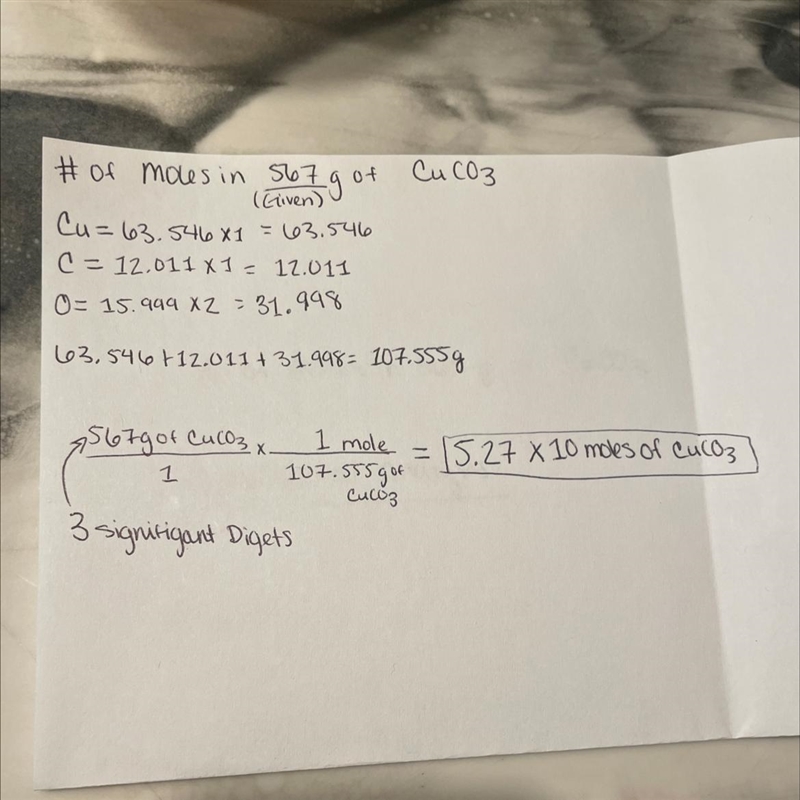 # of moles in 567 g of CuCO3
(Given)
Cu = 63.546 x 1 = 63.546
C = 12.011 x 1 = 12.011
O = 15.999 x 2 = 31.998
63.546 + 12.011 + 31.998 = 107.555g
567g of CuCO3 x 1 mole = 5.27 x 10 moles of CuCO3
1 107.555g of
CuCO3
3 signifigant Digets